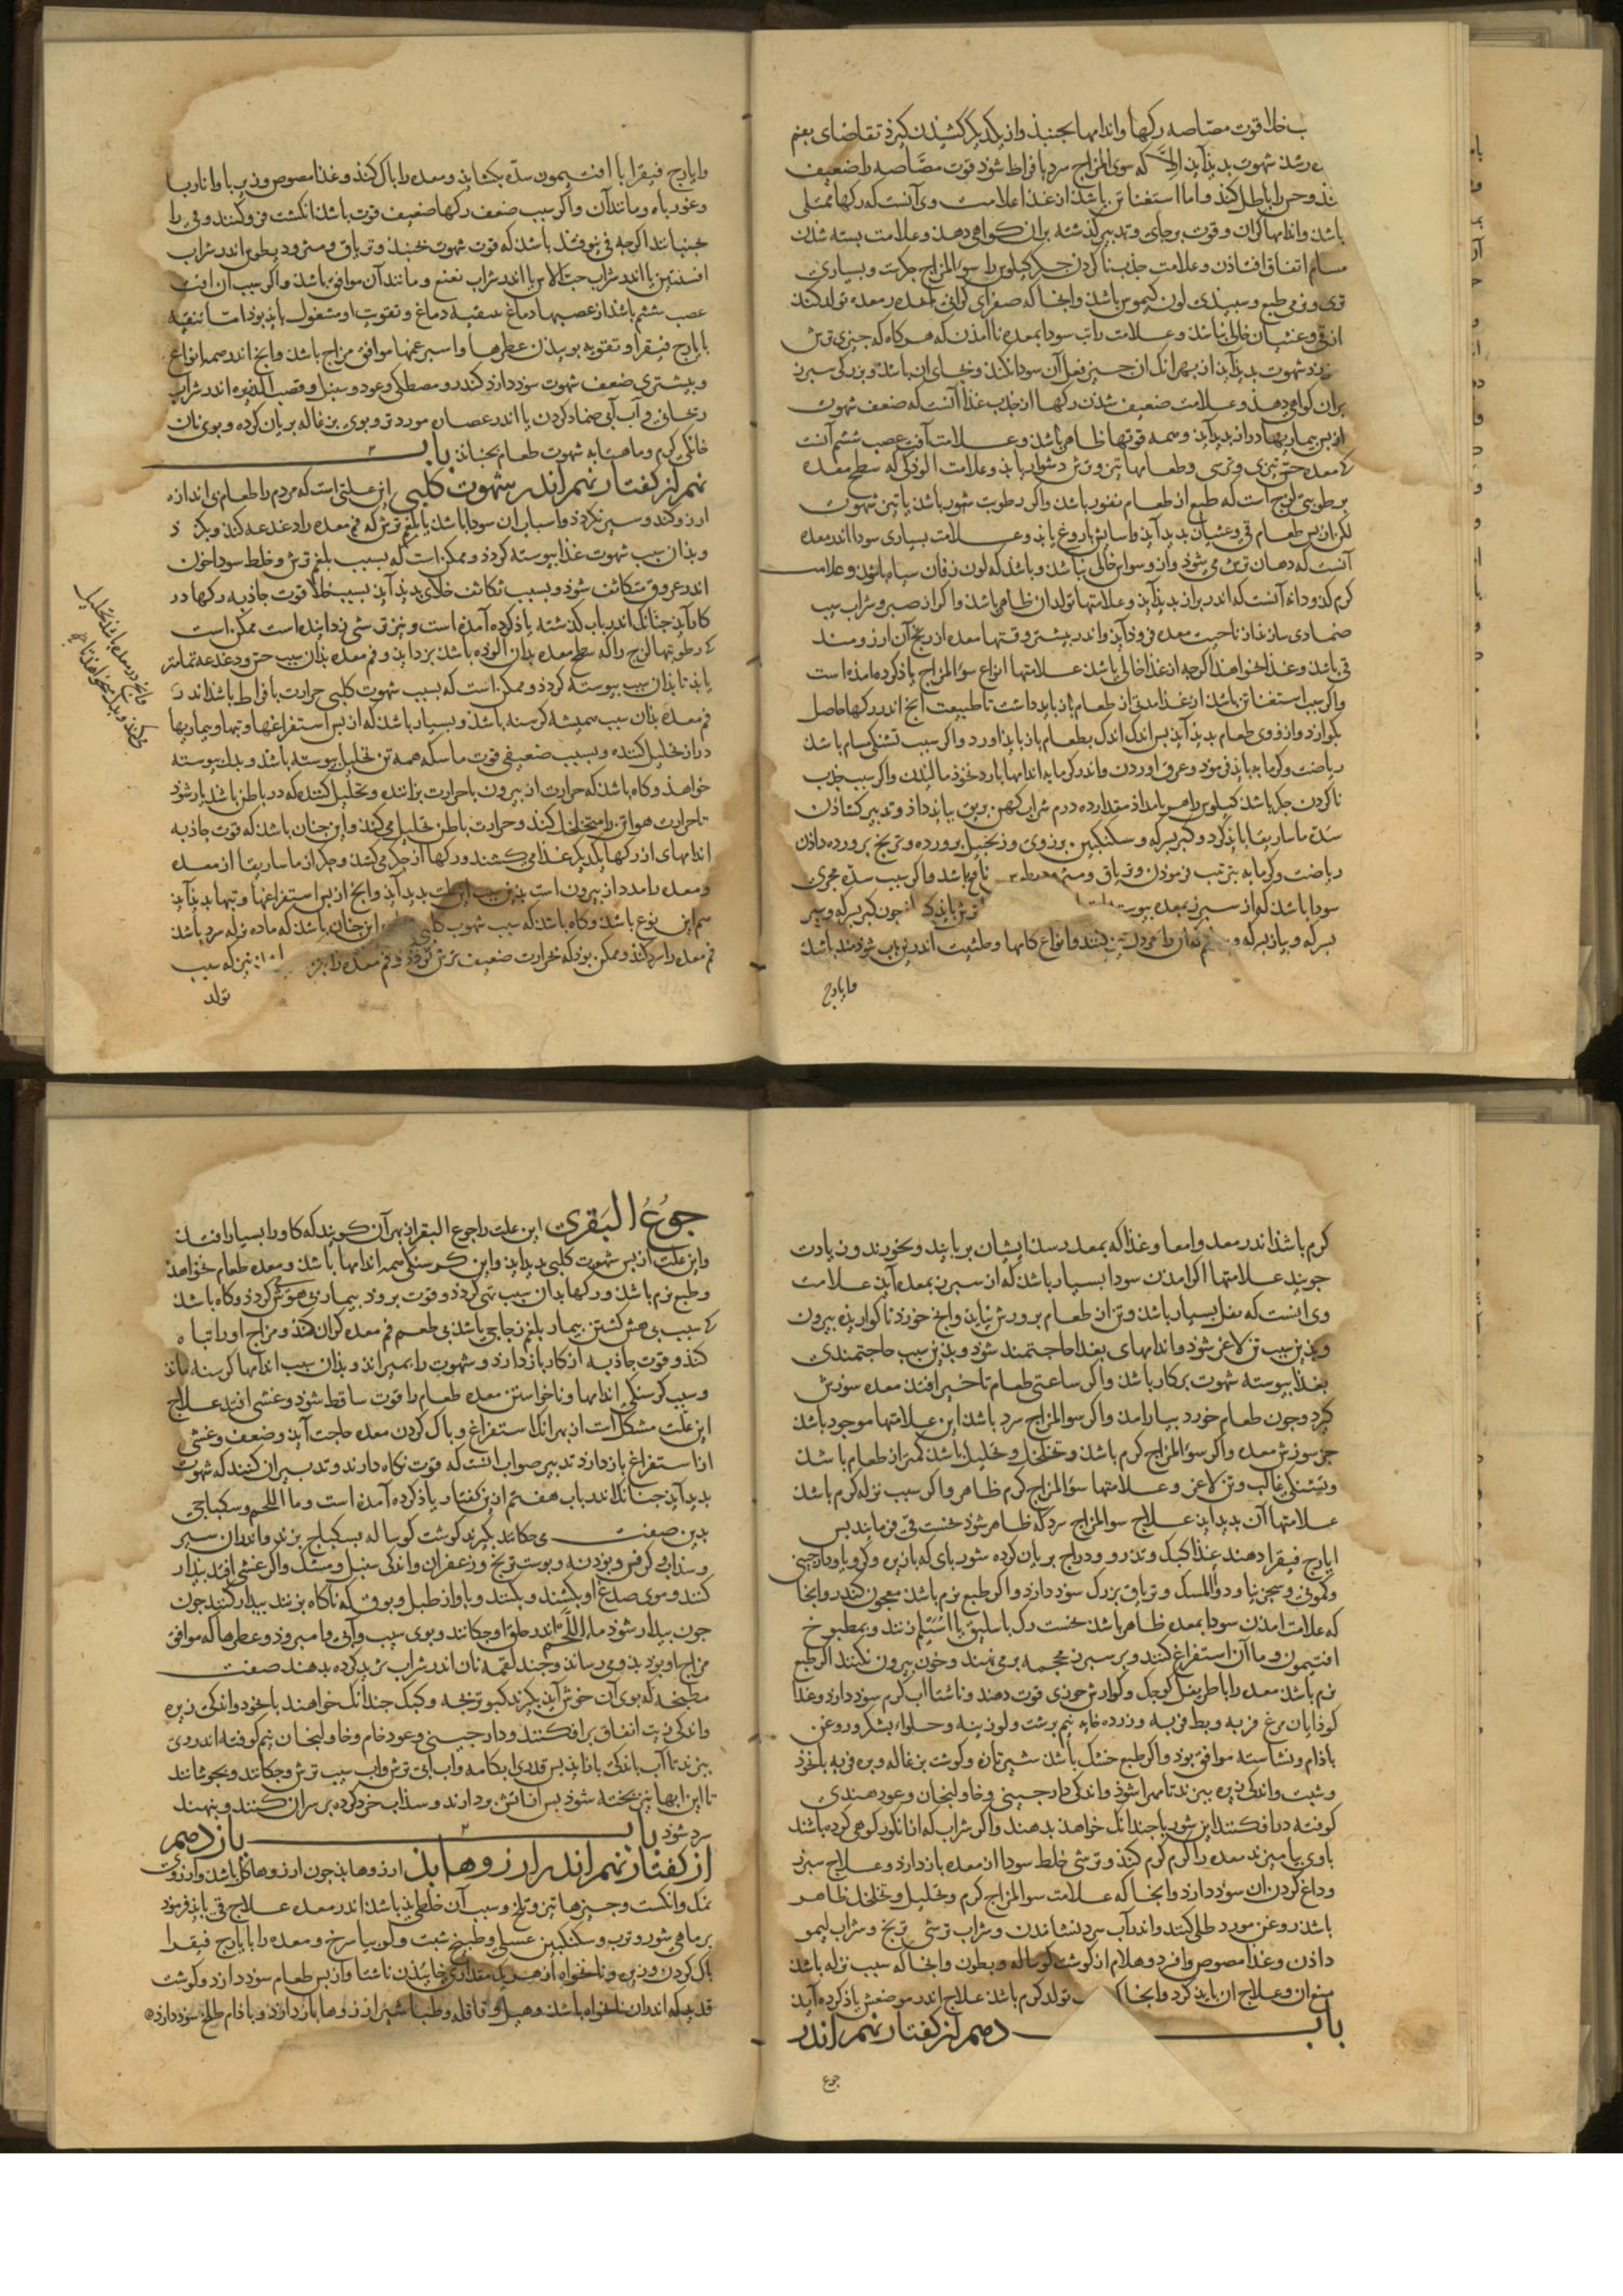 ب خلا قوت مصّاصه رکها واندامها بجنبذ واز یکدیکر کشیذن کیرذ تقاضای بعنم
رسذ شهوت بدیذ آیذ الا که سوی المزاج سرد بافراط شوذ قوت مصّاصه را ضعیف
کنذ وحس را باطل کنذ واما استغنا تن باشذ از غذا علامت وی آنست که رکها ممتلی
باشذ واندامها کران وقوت برجای وتدبیر کذشته بران کواهی دهذ وعلامت بسته شدن
مسام اتفاق افتاذن وعلامت جذب نا کردن جکر کیلوس را سوء المزاج جکرست وبسیاری
تری ونرمی طبع وسبیذی لون کیموس باشذ وانجا که صفرای کرانی معده در معده تولد کنذ
از قی وغشیان خالی نباشذ وعلامت راتب سودا بمعده نا امذن که هرکاه که جیزی ترش
خورذ شهوت بدیذ آیذ از بهر انک ان جیز فعل آن سودا بکنذ وبجای ان باشذ وبزرکی سبرز
بران کواهی دهذ وعلامت ضعیف شذن رکها از جذب غذا آنست که ضعف شهوت
از بس بیماریها دراز بدید آیذ وهمه قوتها ظاهر باشذ وعلامت آفت عصب ششم آنست
که معده حس تیزی وترشی وطعامها تیز وترش دشوار یابذ وعلامت الوذکی که سطح معده
برطوبتی لزج است که طبع از طعام نفور باشذ واکر رطوبت شور باشذ یا تیز شهوت
لکن از بس طعام قی وغشیان بدید آیذ واسایش باروغ یابذ وعلامت بسیاری سودا اندر معده
آنست که دهان ترش می شوذ واز وسواس خالی نباشذ وباشذ که لون زفان سیاه شوذ وعلامت
کرم کذو دانه آنست که اندر براز بدید آیذ وعلامتها تولد ان ظاهر باشذ واکر از صبر وشراب سیب
ضمادی سازند از ناحیت معده فروذ آیذ واندر بیشتر وقتها معده از رنج آن ارزومند
قی باشذ وغذا نخواهذ اکرجه از غذا خالی باشذ علامتها انواع سوء المزاج یاذ کرده امذه است
واکر سبب استغنا تن باشذ از غذا مدتی از طعام باز بایذ داشت تا طبیعت انج اندر رکها حاصل
بکوارد وارزوی طعام بدید آیذ بس اندک اندک بطعام باز بایذ اورد واکر سبب تنکی مسام باشذ
ریاضت وکرمابه بایذ فرموذ وعرق اوردن واندر کرمابه اندامها بارد نخوذ مالیذن واکر سبب جذب
نا کردن جکر باشذ کیلوس را هر بامداذ مقدار ده درم شراب کهن وبق بیایذ داذ وتدبیر کشاذن
سدّه ماساریقا بایذ کرد وکبر بسرکه وسکنکبین بزوری وزنجبیل برورده وترنج برورده داذن
ریاضت وکرمابه بترتیب فرموذن وتریاق ومثرودیطوس نافع باشذ واکر سبب سدّه مجری
سودا باشذ که از سبرز بمعده بیوسته است جون کبر بسرکه وسیر
بسرکه وبیاز بسرکه
وانواع کامها وحلتیت اندرین باب سوذمند باشذ
وایارج
وایارج فیقرا با افتیمون سدّه بکشایذ ومعده را باک کنذ وغذا مصوص وزیربا وانار با
وغوربا وماننذ آن واکر سبب ضعف رکها ضعیف قوت باشذ انکشت فرو کنند وقی را
بجنبانند اکرجه قی نیوفتذ باشذ که قوت شهوت بجنبذ وتریاق ومثرودیطوس اندر شراب
افسنتین یا اندر شراب حب الاس یا اندر شراب نعنع وماننذ آن موافق باشذ واکر سبب ان افت
عصب ششم باشذ از عصبها دماغ بتنقیه دماغ وتقویت او مشغول بایذ بوذ اما تنقیه
بایارج فیقرا وتقویه ببوییذن عطرها واسبرغمها موافق مزاج باشذ وانج اندر همه انواع
وبیشتری ضعف شهوت سوذ دارذ کندر ومصطکی وعود وسنبل وقصب الذریره اندر شراب
ریحانی وآب آبی ضماد کردن یا اندر عصاره مورد تر وبوی بزغاله بریان کرده وبوی نان
خانکی کرم وماهیتابه شهوت طعام بجنبانذ باب
نهم از کفتار نهم اندر شهوت کلبی این علتی است که مردم را طعام بی اندازه
ارزو کند وسیر نکرذذ واسباب ان سودا باشذ یا بلغم ترش که فم معده را دغدغه کنذ وبکزذ
وبذان سبب شهوت غذا بیوسته کرذذ وممکن است که بسبب بلغم ترش وخلط سودا خون
اندر عروق متکاثف شوذ وبسبب تکاثف خلای بدیذ آیذ بسبب خلا قوت جاذبه رکها در
کار آیذ جنانک اندر باب کذشته یاذ کرده آمده است ونیز ترشی زداینده است ممکن است
که رطوبتها لزج را که سطح معده بدان آلوذه باشذ بزدایذ وفم معده بذان سبب حس ودغدغه تمامتر
یابذ تا بذان سبب بیوسته کرذذ وممکن است که بسبب شهوت کلبی حرارت بافراط باشذ اندر
فم معده بذان سبب همیشه کرسنه باشذ وبسیار باشذ که از بس استفراغها وتبها وبیماریها
دراز تحلیل کننده وبسبب ضعیفی قوت ماسکه همه تن تحلیل بیوسته باشذ وبدل بیوسته
خواهذ وکاه باشذ که حرارت از بیرون با حرارت برانند وتحلیل کننده که در باطن باشذ یار شوذ
تا حرارت هوا تن را متخلخل کند وحرارت باطن تحلیل می کند واین جنان باشذ که قوت جاذبه
اندامهای از رکها یکدیکر غذا می کشند ورکها از جکر می کشذ وجکر از ماساریقا از معده
ومعده را مدد از بیرون است بذین سبب این علت بدید آیذ وانج از بس استفراغها وتبها بدیذ آیذ
هم این نوع باشذ وکاه باشذ که سبب شهوت کلبی این جنان باشذ که ماده نزله سرد باشذ
فم معده را سرد کند وممکن بوذ که حرارت ضعیف ترش کرذذ وفم معده را بکزذ که سبب
تولد
کرم باشذ اندر معده وامعا وغذا که بمعده رسذ ایشان بربایند وبخورند وزیادت
جویند علامتها اکر امذن سودا بسیار باشذ که از سبرز بمعده آیذ علامت
وی اینست که ثفل بسیار باشذ وتن از طعام برورش نیابذ وانج خورذ نا کواریذه بیرون
وبذین سبب تن لاغر شوذ واندامهای بغذا حاجتمند شوذ وبذین سبب حاجتمندی
بغذا بیوسته شهوت برکار باشذ واکر ساعتی طعام تاخیر افتذ معده سوزش
کیرد وجون طعام خورد بیارامذ واکر سوء المزاج سرد باشذ این علامتها موجود باشذ
جز سوزش معده واکر سوء المزاج کرم باشذ وتخلخل وتحلیل باشذ کمتر از طعام باشذ
وتشنکی غالب وتن لاغر وعلامتها سوء المزاج کرم ظاهر واکر سبب نزله کرم باشذ
علامتها آن بدید آیذ علاج سوء المزاج سرد که ظاهر شوذ نخست قی فرمایند بس
ایارج فیقرا دهند غذا کبک وتذرو ودراج بریان کرده شوربای که بازیره وکرویا ودارجینی
وکمونی وسجزنیا ودواء المسک وتریاق بزرک سوذ دارذ واکر طبع نرم باشذ معجون کندر وانجا
که علامت امذن سودا بمعده ظاهر باشذ نخست رک باسلیق یا اسیلم زنند وبمطبوخ
افتیمون وماء آن استفراغ کنند وبر سبرز محجمه برمی نهند وخون بیرون نکنند اکر طبع
نرم باشذ معده را باطریفل کوجک وکوارش حوزی قوت دهند وناشتا آب کرم سوذ دارذ وغذا
کوذابان مرغ فربه وبط فربه وزرده خایه نیم برشت ولوزینه وحلواء بشکر وروغن
باذام ونشاسته موافق بوذ واکر طبع خشک باشذ شیر تازه وکوشت بزغاله وبره فربه بانخوذ
وشبت واندکی زیره ببزند تا مهرا شوذ واندکی دارجینی وخاولنجان وعود هندی
کوفته درافکنند این شوربا جندانک خواهذ بدهند واکر شراب که از انکور کوهی کرده باشند
باوی بیامیزند معده را کرم کرم کنذ وترشی خلط سودا از معده باز دارد وعلاج سبرز
وداغ کردن ان سوذ دارذ وانجا که علامت سوء المزاج کرم وتحلیل وتخلخل ظاهر
باشذ روغن مورد طلی کنند واندر آب سرد نشاندن وشراب ترشی ترنج وشراب لیمو
داذن وغذا مصوص وافرد وهلام از کوشت کوساله وبطون وانجا که سبب نزله باشذ
منع ان وعلاج ان بایذ کرد وانجا که تولد کرم باشذ علاج اندر موضعش یاذ کرده آیذ
باب دهم از کفتار نهم اندر
جوع
جوعُ البَقَری این علت را جوع البقر از بهر آن کویند که کاو را بسیار افتذ
واین علت از بس شهوت کلبی بدید آیذ واین کرسنکی همه اندامها باشذ ومعده طعام نخواهذ
وطبع نرم باشذ ورکها بدان سبب تهی کرذذ وقوت برود بیمار بی هوش کرذذ وکاه باشذ
که سبب بی هش کشتن بیمار بلغم زجاجی باشذ بی طعم فم معده کران کنذ ومزاج او را تباه
کنذ وقوت جاذبه از کار باز دارد وشهوت را بمیراند وبذان سبب اندامها کرسنه ماند
وسبب کرسنکی اندامها وناخواستن معده طعام را قوت ساقط شوذ وغشی افتذ علاج
این علت مشکل است از بهر انک استفراغ وباک کردن معده حاجت آیذ وضعف وغشی
از استفراغ باز دارذ تدبیر صواب آنست که قوت نکاه دارند وتدبیر ان کنند که شهوت
بدید آیذ جنانک اندر باب هفتم ازین کفتار یاذ کرده آمده است وماء اللحم وسکباجی
بدین صفت می جکانند بکیرند کوشت کوساله بسکباج ببزند واندر آن سیر
وسذاب وکرفس وبوذنه وبوست ترنج وزعفران واندکی سنبل ومشک واکر غشی افتذ بیدار
کنند وموی صدغ او بکشند وبکنند وباواز طبل وبوق که ناکاه بزنند بیدار کنند جون
جون بیدار شوذ ماء اللّحم اندر حلق او جکانند وبوی سیب وآبی وامبرود وعطرها که موافق
مزاج او بود بذو می رساند وجند لقمه نان اندر شراب ثرید کرده بدهند صفت
مطبخنه که بوی آن خوش آیذ بکیرند کبوتر بجه وکبک جندانک خواهند بانخوذ واندکی زیره
واندکی زیت انفاق برافکنند ودارجینی وعود خام وخاولنجان نیم کوفته اندر وی
ببزند تا آب باندکی باز آیذ بس قدری ابکامه وآب آبی ترش وآب سیب ترش وجکانند وبجوشانند
تا این ابها نیز بخته شوذ بس از آتش بردارند وسذاب خرد کرده بر سر ان کنند وبنهند
سرد شوذ باب یازدهم
از کفتار نهم اندر ارزوها بذ ارزوها بذ جون ارزوها کل باشذ وآرزوی
نمک وانکشت وجیزها تیز وتلخ وسبب آن خلطی بذ باشذ اندر معده علاج قی بایذ فرموذ
بر ماهی شور وترب وسکنکبین عسلی وطبیخ شبت ولوبیا سرخ ومعده را بایارج فیقرا
باک کردن وزیره ونانخواه از هر یک مقداری خاییذن ناشتا واز بس طعام سوذ دارذ وکوشت
قدید که اندر ان نانخواه باشذ وهیل وقاقله وطباشیر ارزوها باز دارذ وباذام طلخ سوذ دارذ